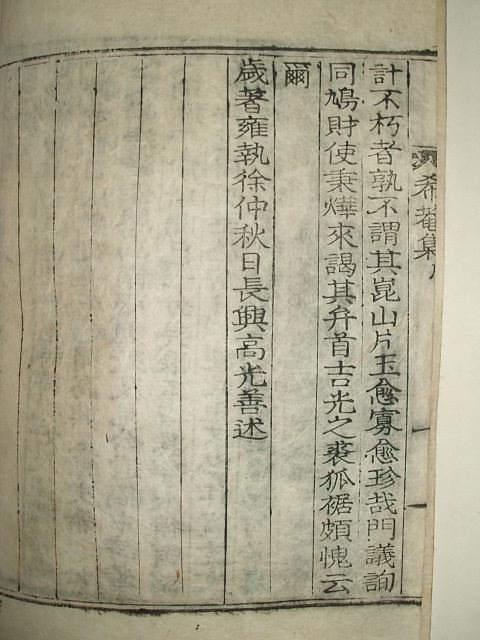 希菴集序
計不朽者孰不謂其崑山片玉愈寡愈珍哉門議詢
同鳩財使秉燁來謁其弁首吉光之裘狐裾頗愧云
爾
歲著雍執徐仲秋日長興高光善述